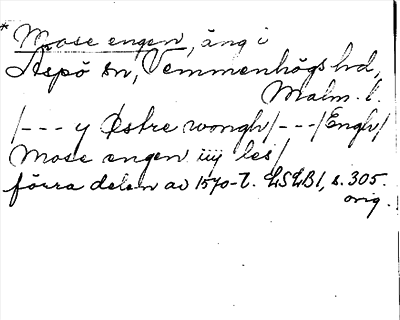 * Mose engen, äng i
Äspö sn, Vemmenhögs hd,
Malm. l.
/--- y Østre wongh/---/Engh/
Mose engen iiij les/
förra delen av 1570-t. LSLB1, s. 305.
orig.